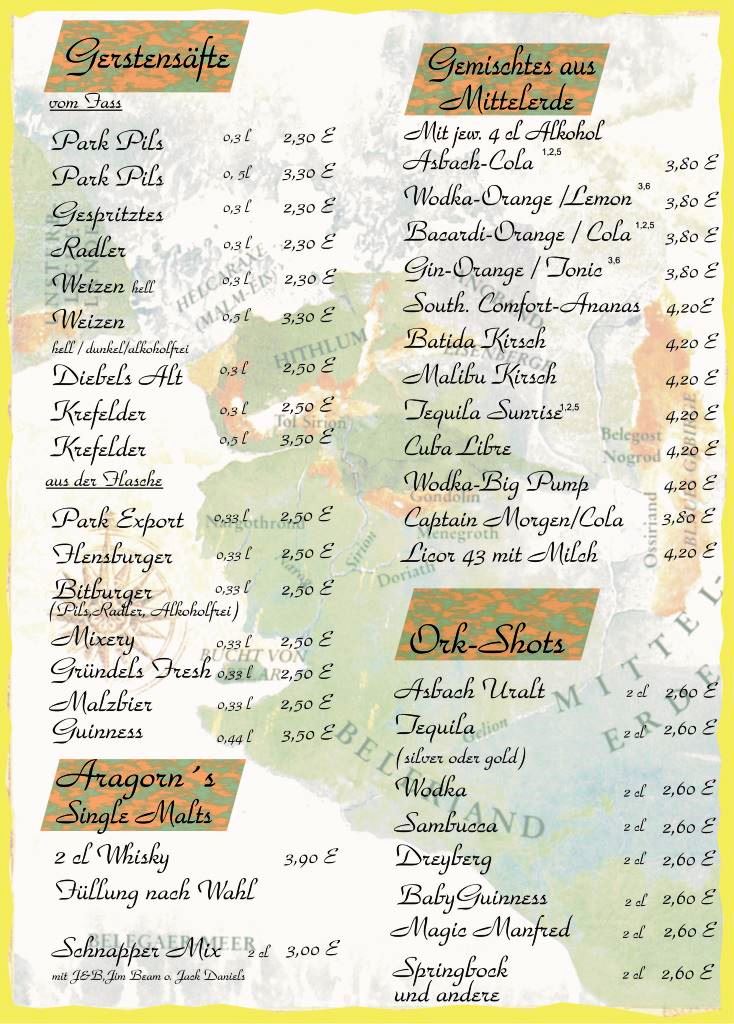 Gerstensäfte
vom Fass
Park Pils 0,3 l 2,30 €
Park Pils 0, 5l 3,30 €
Gespritztes 0,3 l 2,30 €
Radler 0,3 l 2,30 €
Weizen hell 0,3 l 2,30 €
Weizen 0,5 l 3,30 €
hell / dunkel/alkoholfrei
Diebels Alt 0,3 l 2,50 €
Krefelder 0,3 l 2,50 €
Krefelder 0,5 l 3,50 €
aus der Flasche
Park Export 0,33 l 2,50 €
Flensburger 0,33 l 2,50 €
Bitburger 0,33 l 2,50 €
(Pils,Radler, Alkoholfrei)
Mixery 0,33 l 2,50 €
Gründels Fresh 0,33 l 2,50 €
Malzbier 0,33 l 2,50 €
Guinness 0,44 l 3,50 €
Aragorn´s
Single Malts
2 cl Whisky 3,90 €
Füllung nach Wahl
Schnapper Mix 2 cl 3,00 €
mit J&B,Jim Beam o. Jack Daniels
Gemischtes aus
Mittelerde
Mit jew. 4 cl Alkohol
Asbach-Cola 1,2,5 3,80 €
Wodka-Orange /Lemon 3,6 3,80 €
Bacardi-Orange / Cola 1,2,5 3,80 €
Gin-Orange / Tonic 3,6 3,80 €
South. Comfort-Ananas 4,20€
Batida Kirsch 4,20 €
Malibu Kirsch 4,20 €
Tequila Sunrise 1,2,5 4,20 €
Cuba Libre 4,20 €
Wodka-Big Pump 4,20 €
Captain Morgen/Cola 3,80 €
Licor 43 mit Milch 4,20 €
Ork-Shots
Asbach Uralt 2 cl 2,60 €
Tequila 2 cl 2,60 €
(silver oder gold)
Wodka 2 cl 2,60 €
Sambucca 2 cl 2,60 €
Dreyberg 2 cl 2,60 €
BabyGuinness 2 cl 2,60 €
Magic Manfred 2 cl 2,60 €
Springbock 2 cl 2,60 €
und andere
HELCARAXE
(MALM-EIS)
HITHLUM
Tol Sirion
EISENBERGE
Belegost
Nogrod
BLAUE GEBIRGE
Ossiriand
Gondolin
Menegroth
Nargothrond
Sirion
Narog
Doriath
BUCHT VON
Gelion
BELERIAND
MITTEL-
ERDE
BELEGAER-MEER